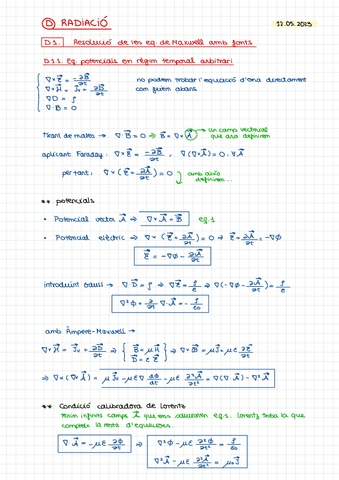 D RADIACIÓ 12.05.2023
D.1. Resolució de les eq. de Maxwell amb fonts
D.1.1. Eq. potencials en règim temporal arbitrari
∇×E⃗ = -∂B⃗/∂t no podem trobar l'equació d'ona directament
∇×H⃗ = J⃗v + ∂D⃗/∂t com fèiem abans.
∇D = ρ
∇·B = 0
Tirant de mates → ∇·B⃗ = 0 ⇒ B⃗ = ∇×A⃗ un camp vectorial
que ara definirem
aplicant Faraday: ∇×E⃗ = -∂B⃗/∂t , ∇(∇×A⃗) = 0 · ∀A⃗
per tant, ∇×(E⃗ + ∂A⃗/∂t) = 0 → amb això
definirem...
** potencials
• Potencial vector A⃗ ⇒ ∇×A⃗ = B⃗ eq.1
• Potencial elèctric ⇒ ∇×(E⃗ + ∂A⃗/∂t) = 0 ⇒ E⃗ + ∂A⃗/∂t = -∇Φ
E⃗ = -∇Φ - ∂A⃗/∂t
introduint Gauss → ∇·D⃗ = ρ ⇒ ∇E⃗ = ρ/ε ⇒ ∇(-∇Φ - ∂A⃗/∂t) = ρ/ε
∇²Φ + ∂/∂t ∇·A⃗ = -ρ/ε₀
amb Ampere-Maxwell →
∇×H⃗ = J⃗v + ∂D⃗/∂t ⇒ { B⃗ = μH⃗ D⃗ = εE⃗ } ⇒ ∇×B⃗ = μJ⃗v + με ∂E⃗/∂t
⇒ ∇×(∇×A⃗) = μJ⃗v - με∇ ∂Φ/∂t - με ∂²A⃗/∂t² = ∇(∇A⃗) - ∇²A⃗
** Condició calibradora de Lorentz
tenim infinits camps A⃗ que ens satisfaran eq.1. Lorentz troba la que
compleix la resta d'equacions.
∇·A⃗ = -με ∂Φ/∂t ⇒ ∇²Φ - με ∂²Φ/∂t² = -ρ/ε₀
∇²A⃗ - με ∂²A⃗/∂t² = -μ₀J⃗